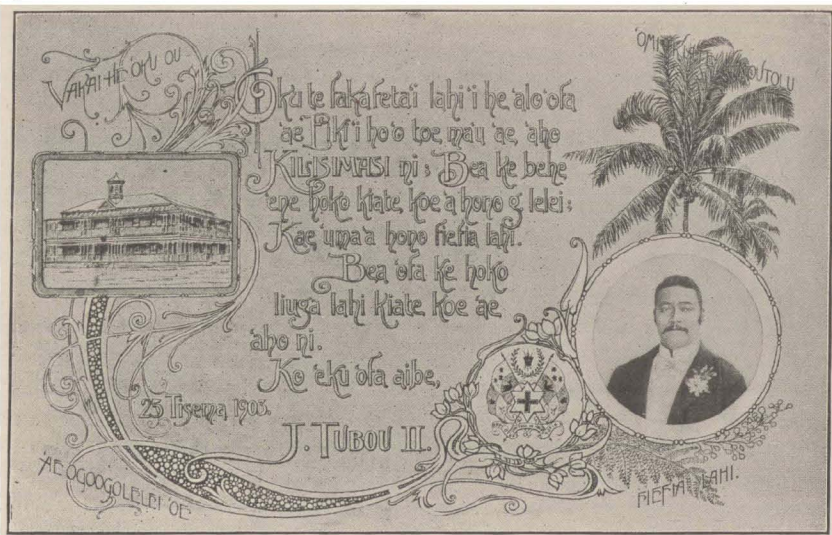 VAKAI HE 'OKU OU
Oku te fakafetai lahi 'i he alo'ofa
ae 'Eiki ho'o toe ma'u ae 'aho
KILISIMASI ni; Bea ke behe
'ene hoko kiate koe 'a hono g lelei;
Kae 'uma'a hono fiefia lahi.
Bea 'ofa ke hoko
liuga lahi kiate koe ae
aho ni.
Ko 'eku 'ofa aibe,
25 Tisema 1903.
J. TUBOU II.
'AE OGOOGOLELEI 'OE
FIEFIA LAHI.